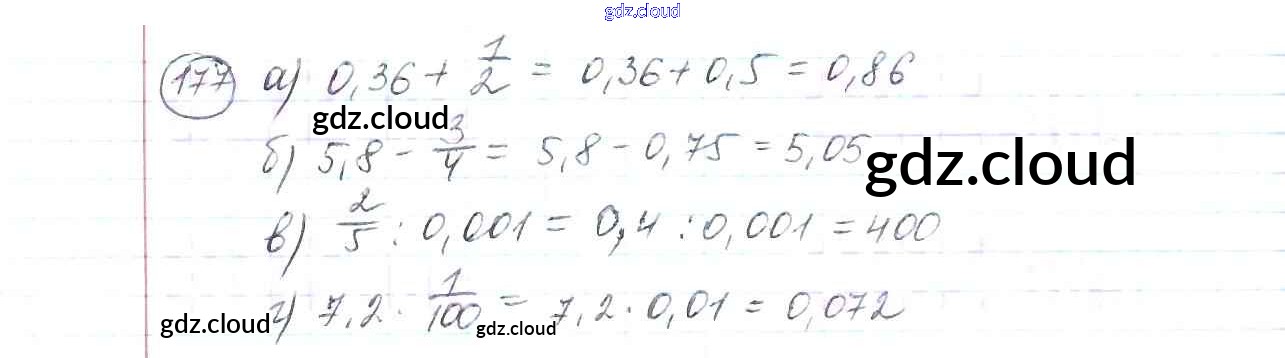 gdz.cloud
177 а) 0,36 + 1/2 = 0,36 + 0,5 = 0,86
gdz.cloud
б) 5,8 - 3/4 = 5,8 - 0,75 = 5,05
gdz.cloud
в) 2/5 : 0,001 = 0,4 : 0,001 = 400
г) 7,2 · 1/100 = 7,2 · 0,01 = 0,072
gdz.cloud
gdz.cloud